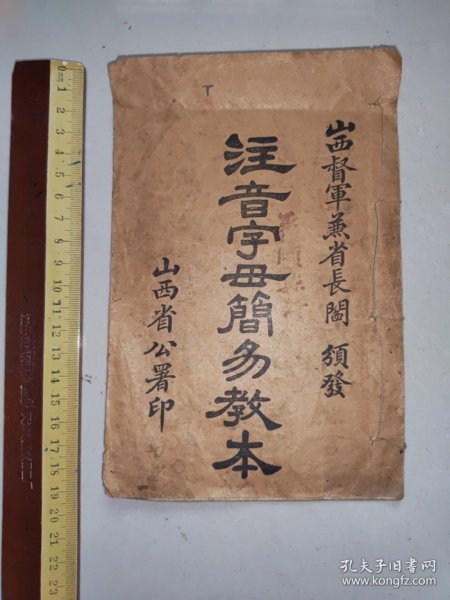 山西督軍兼省長閻 頒發
注音字母簡易教本
山西省公署印
0㎜ 1 2 3 4 5 6 7 8 9 10 11 12 13 14 15 16 17 18 19 20 21 22 23
孔夫子旧书网
www.kongfz.com